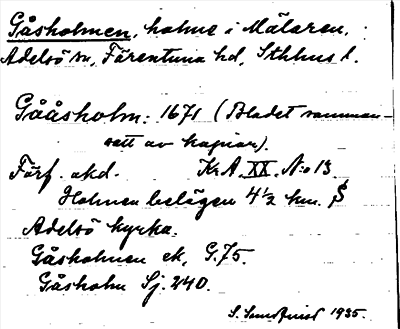 Gåsholmen, holme i Mälaren,
Adelsö sn, Färentuna hd, Sthlms l.
Gååsholm: 1671 (Bladet samman-
satt av kopior).
Förf. okd. Kr.A. XX. N:o 13.
Holmen belägen 4½ km. S
Adelsö kyrka.
Gåsholmen ek. G.75.
Gåsholm Sj. 240.
S. Sundquist 1935.